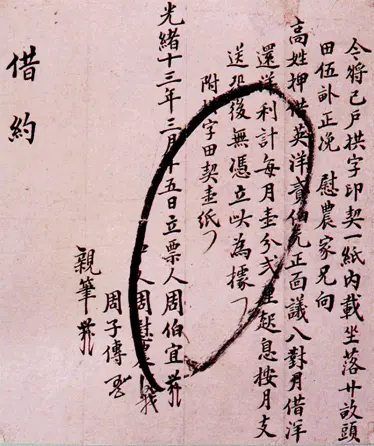 今將己戶拱字印契一紙內載坐落廿畝頭
田伍計正浼 慰農家兄向
高姓押借英洋貳伯元正面議八對月借洋
還洋利計每月壹分弍 起息按月支
送恐後無憑立此為據
附 字田契壹紙
光緒十三年三月十五日立票人周伯宜
人周慰農
周子傳
親筆
借約